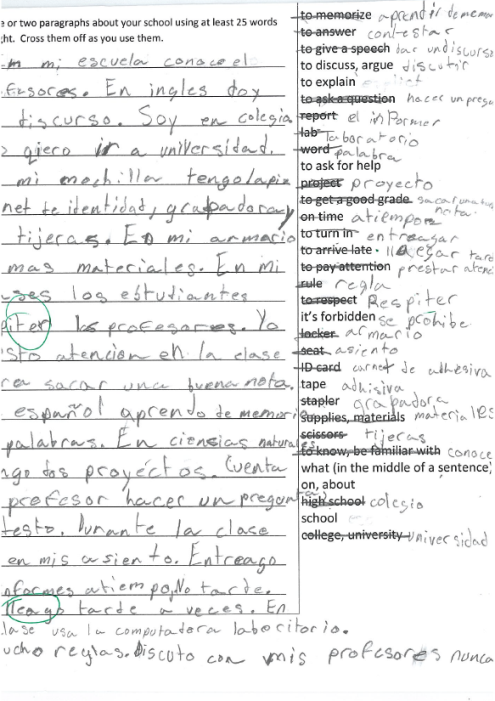 e or two paragraphs about your school using at least 25 words
ht. Cross them off as you use them.
mi escuela conoce el
fesores. En ingles doy
discurso. Soy en colegia
qiero ir a universidad.
mi mochilla tengo lapiz
net de identidad, grapadora y
tijeras. En mi armario
mas materiales. En mi
ses los estudiantes
piter los profesores. Yo
sto atención en la clase
ra sacar una buena nota.
español aprendo de memori
palabras. En ciensias naturales
ngo dos proyéctos. Cuenta
profesor hacer un pregunta
testo. Durante la clase
en mis asiento. Entreago
nformes atiempo, No tarde.
lleago tarde a veces. En
lase usa la computadora laboritorio.
ucho reglas. Discuto con mis profesores nunca
to memorize aprendir de memor
to answer contestar
to give a speech dar un discurso
to discuss, argue discutir
to explain
to ask a question hacer un pregu
report el informer
lab laboratorio
word palabra
to ask for help
project proyecto
to get a good grade sacar una nota
on time atiempo
to turn in entreagar
to arrive late lleagar tard
to pay attention prestar aten
rule regla
to respect Respiter
it's forbidden se prohibe
locker armario
seat asiento
ID card carnet de adhesiva
tape adhisiva
stapler grapadora
supplies, materials materiales
scissors tijeras
to know, be familiar with conoce
what (in the middle of a sentence)
on, about
high school colegio
school
college, university universidad